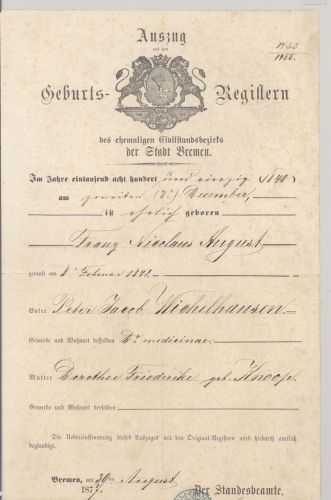 Auszug
aus den
1453
1455.
Geburts- Registern
des ehemaligen Civilstandsbezirks
der Stadt Bremen.
Im Jahre eintausend acht hundert und vierzig (1840)
am zweiten (2.) December,
ist ehelich geboren
Franz Nicolaus August
getauft am Februar 1841.
Vater Peter Jacob Wichelhausen.
Gewerbe und Wohnort desselben Dr. medicinae.
Mutter Dorothee Friederike geb. Knoop.
Gewerbe und Wohnort derselben
Die Uebereinstimmung dieses Auszuges mit den Original-Registern wird hiedurch amtlich
beglaubigt.
Bremen, am 30ten August,
187
Der Standesbeamte.